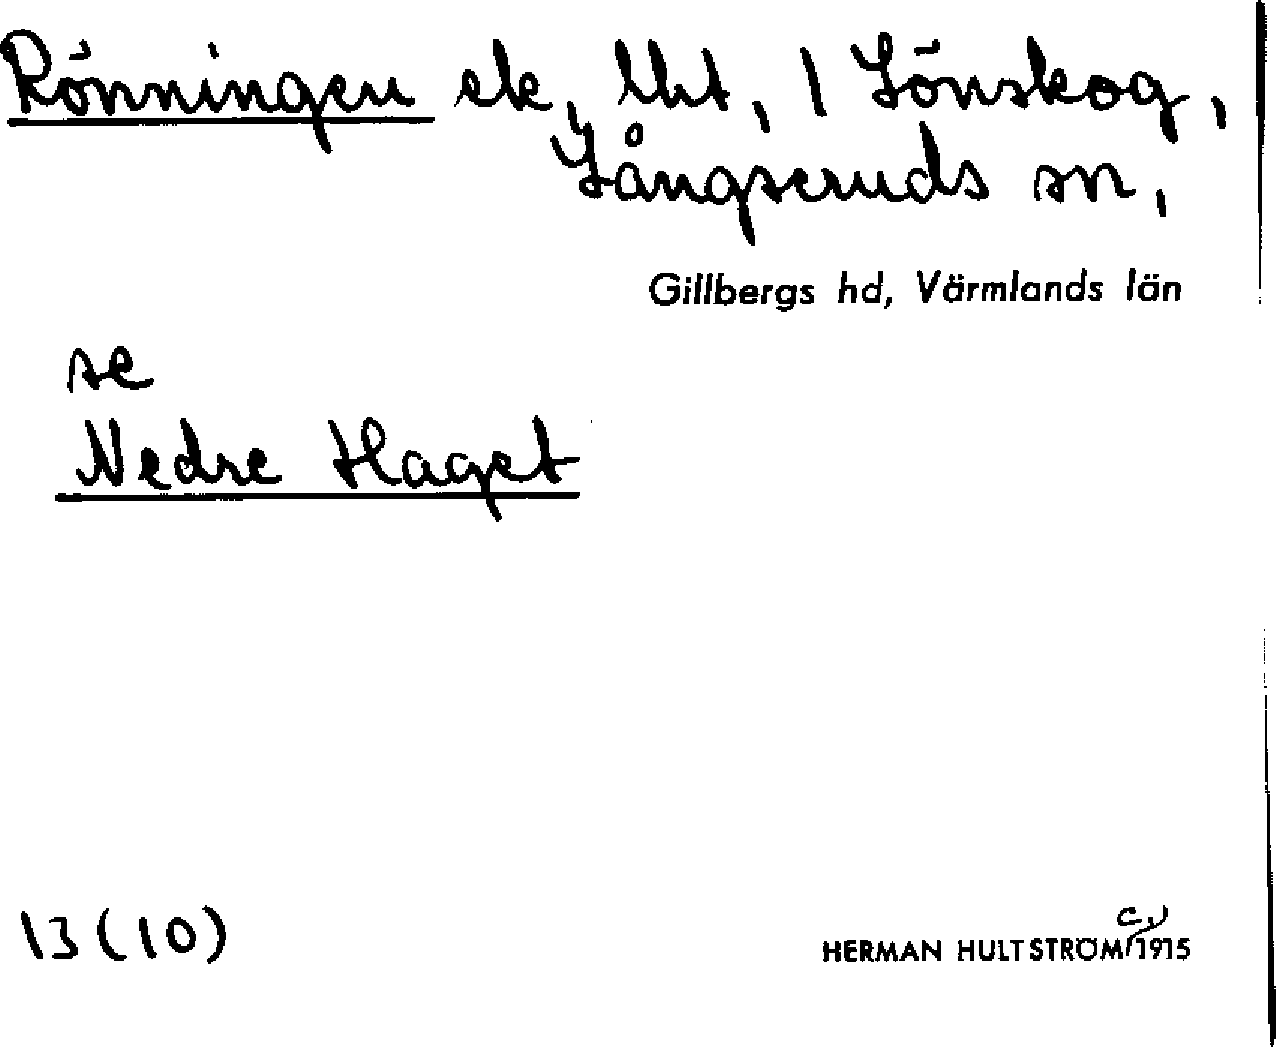 Rönningen ek, lht, 1 Lönskog,
Långseruds sn,
Gillbergs hd, Värmlands län
se
Nedre Haget
13 (10)
HERMAN HULTSTRÖM 1915